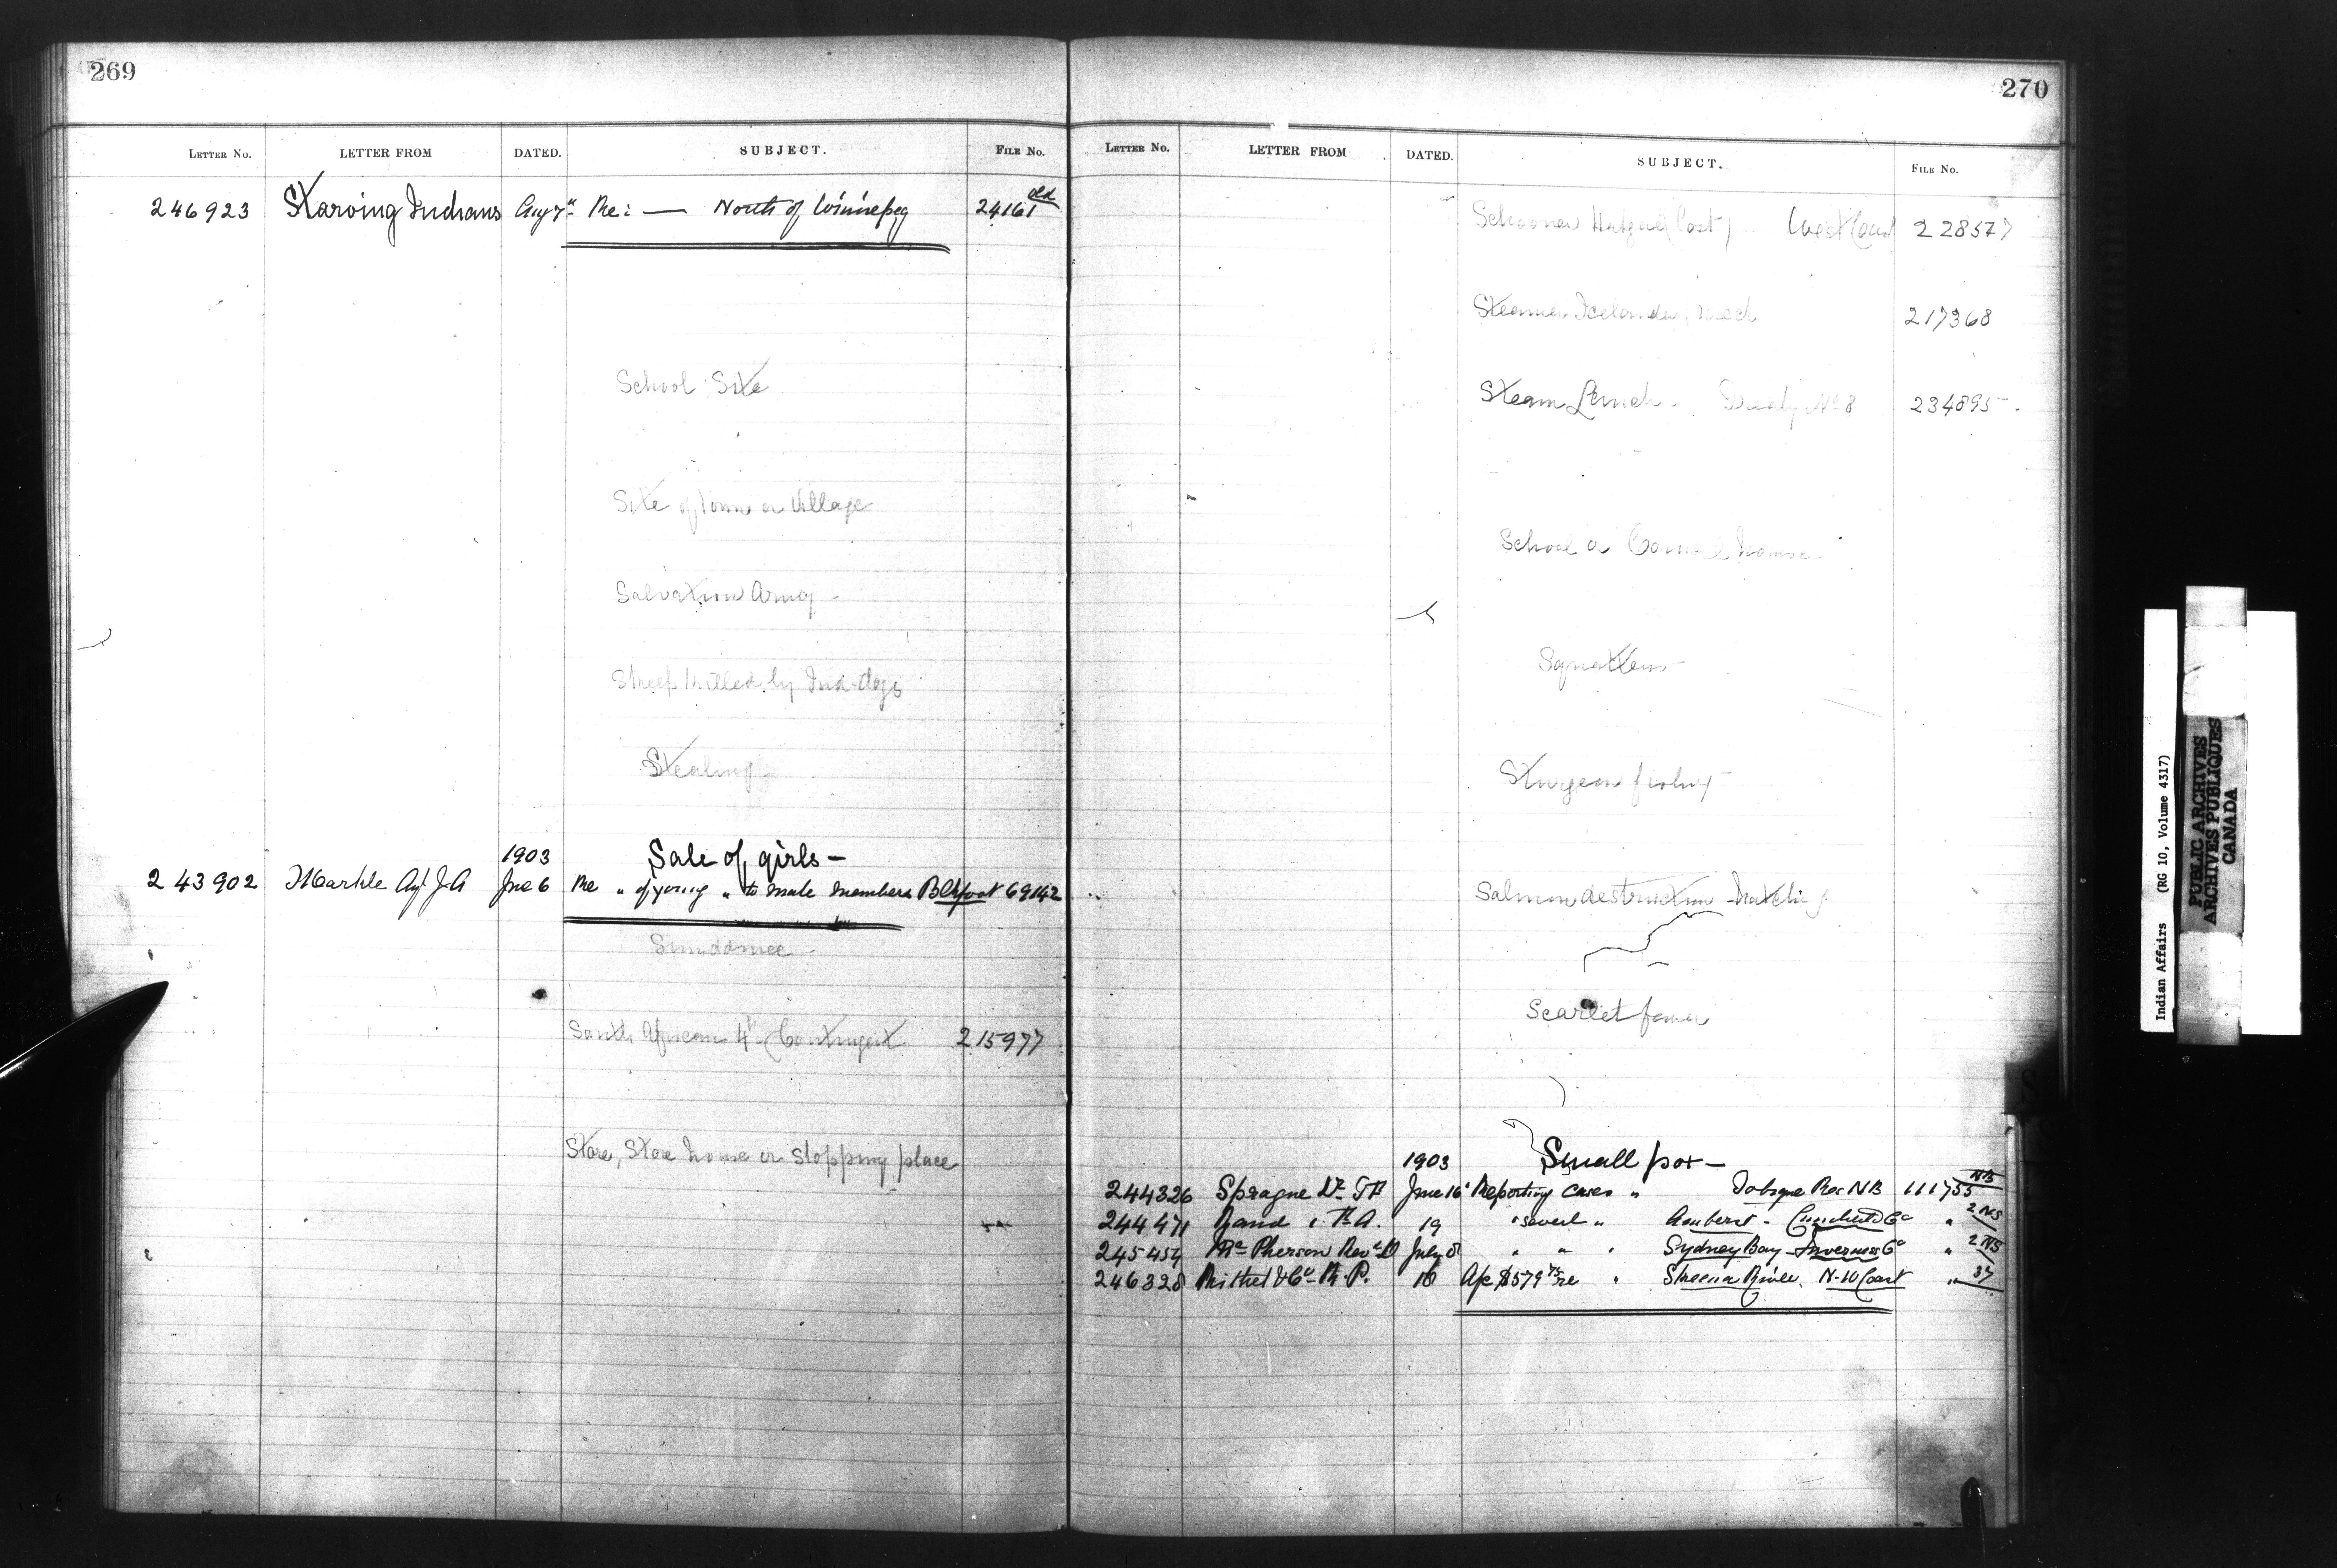 269
LETTER No. LETTER FROM DATED. SUBJECT. FILE No.
246923 Starving Indians Aug 7" Re: — North of Winnipeg 24161 old
School Site
Site of Town or Village
Salvation Army -
Sheep killed by Ind. dogs
Stealing
1903 Sale of girls —
243902 Markle Agt J.A June 6 Re " of young " to male members Blkfoot 69142
Sundance -
South African 4" Contingent 215977
Store, Store house or stopping place
270
LETTER No. LETTER FROM DATED. SUBJECT. FILE No.
Schooner (Lost) West Coast 228577
Steamer Icelander, 217368
Steam Launch. Treaty No 8 234895.
School or Council house
Squatters
Sturgeon fishing
Salmon destruction
Scarlet fever
1903 Small pox —
244326 Sprague Dr. T F June 16 Reporting cases " Tobique Res NB 111755 NB
244471 Rand A. 19 " several " Amherst - Cumberland Co " 2 NS
245454 McPherson Revd D July 8 " " " Sydney Bay - Inverness Co " 2 NS
246328 Rithet & Co R. P. 16 A/c $579 75 re " Skeena River. N-W Coast " 37
Indian Affairs (RG 10, Volume 4317)
PUBLIC ARCHIVES
ARCHIVES PUBLIQUES
CANADA